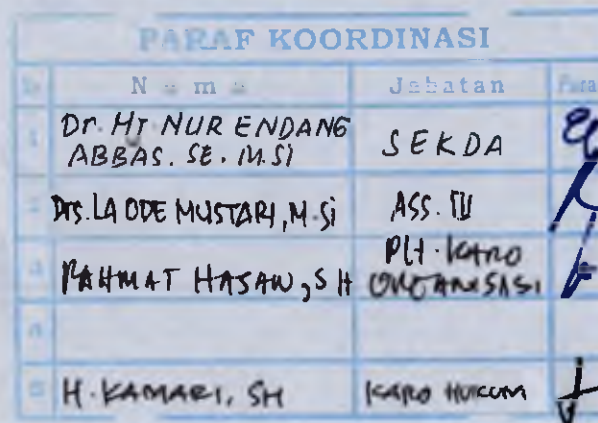 PARAF KOORDINASI
No Nama Jabatan Paraf
1 Dr. Hj NUR ENDANG
ABBAS. SE. M.Si SEKDA
2 Drs. LA ODE MUSTARI, M.Si ASS. III
3 RAHMAT HASAN, SH Plt. KARO
ORGANISASI
4
5 H. KAMARI, SH KARO HUKUM